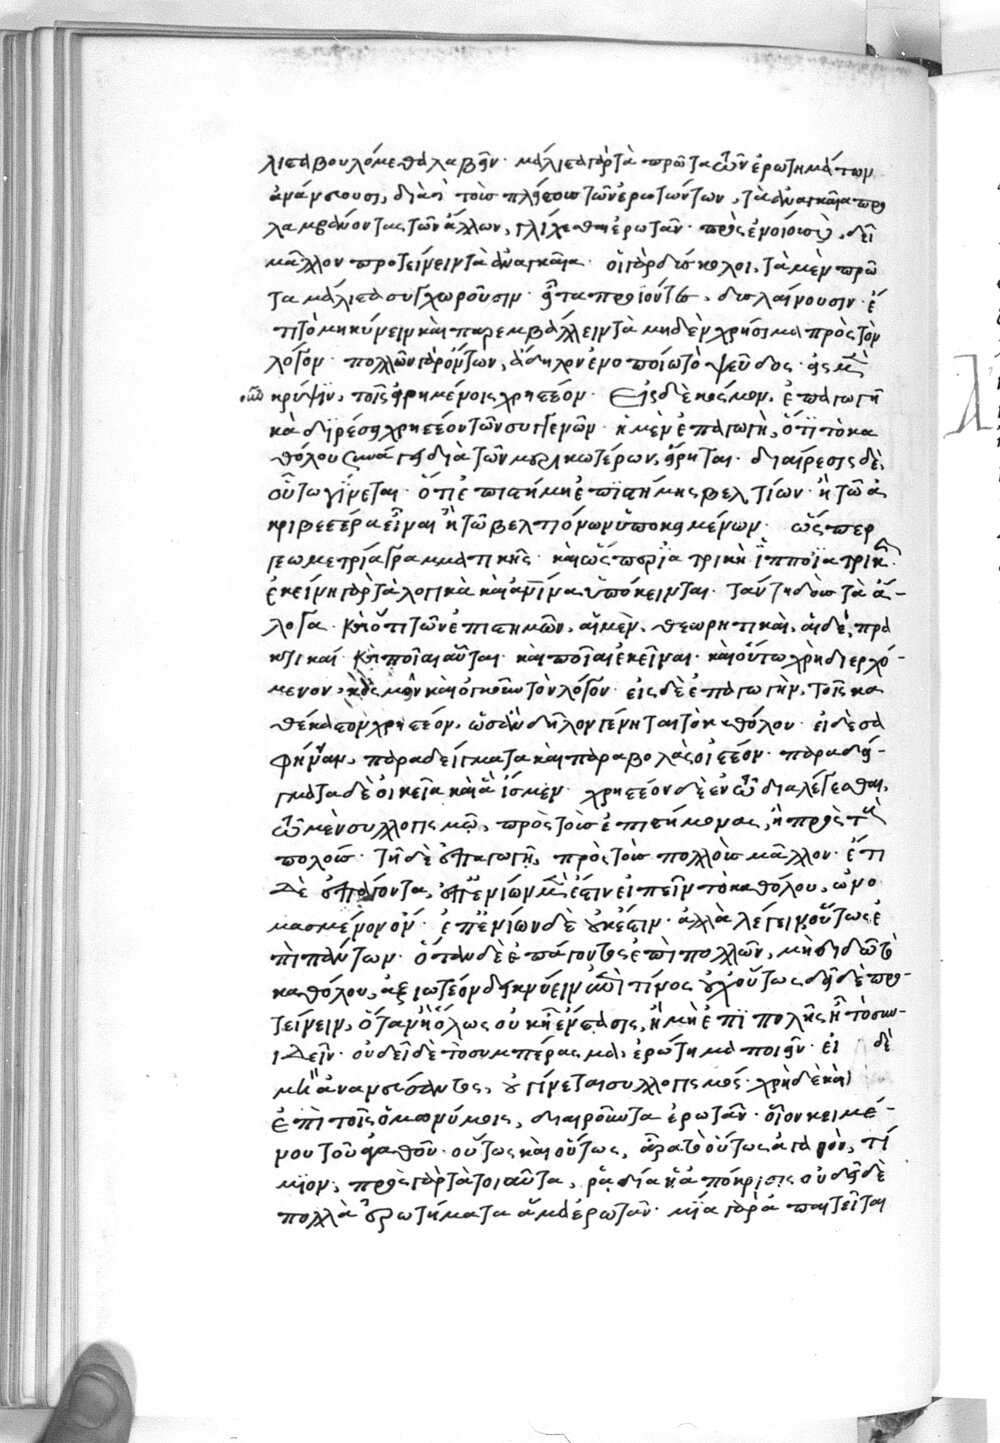 λιστα βουλόμεθα λαβεῖν· μάλιστα γὰρ τὰ πρῶτα τῶν ἐρωτημάτων
ἀνανεύουσι, διὰ τὸ τοὺς πλείστους τῶν ἐρωτώντων, τὰ ἀναγκαῖα προ
λαμβάνοντας τῶν ἄλλων, γλίχεσθαι ἐρωτᾶν· πρὸς ἐνίους, δεῖ
μᾶλλον προτείνειν τὰ ἀναγκαῖα· οἱ γὰρ δύσκολοι, τὰ μὲν πρῶ
τα μάλιστα συγχωροῦσιν· εἶτα προϊόντες, δυσχεραίνουσιν· ἔ
τι τὸ μηκύνειν καὶ παρεμβάλλειν τὰ μηδὲν χρήσιμα πρὸς τὸν
λόγον· πολλῶν γὰρ ὄντων, ἄδηλον ἐν ὁποίῳ τὸ ψεῦδος· εἰς μὲν
κρύψιν, τοῖς εἰρημένοις χρηστέον· Εἰς δὲ κόσμον, ἐπαγωγῇ
καὶ διαιρέσει χρηστέον τῶν συγγενῶν· ἡ μὲν ἐπαγωγὴ, ὅτι τὸ κα
θόλου συνάγει διὰ τῶν μερικωτέρων, εἴρηται· διαίρεσις δὲ,
οὕτω γίνεται· ὅτι ἐπιστήμη ἐπιστήμης βελτίων· ἢ τῷ ἀ
κριβεστέρα εἶναι ἢ τῷ βελτιόνων ὑποκειμένων· ὥσπερ
γεωμετρία γραμματικῆς· καὶ ὥσπερ ἰατρικὴ ἱπποϊατρικῆς·
ἐκείνῃ γὰρ τὰ λογικὰ καὶ ὑπόκεινται· ταύτῃ δὲ τὰ ἄ-
λογα· καὶ ὅτι τῶν ἐπιστημῶν, αἱ μὲν, θεωρητικαὶ, αἱ δὲ, πρα
κτικαί· καὶ ποῖαι αὗται· καὶ ποῖαι ἐκεῖναι· καὶ οὕτω χρὴ διερχό-
μενον, κοσμεῖν καὶ ὀγκοῦν τὸν λόγον· εἰς δὲ ἐπαγωγὴν, τοῖς κα
θέκαστον χρηστέον, ὡς ἂν δῆλον γένηται τὸ καθόλου· εἰ δὲ σα
φήνειαν, παραδείγματα καὶ παραβολὰς οἰστέον· παραδεί-
γματα δὲ οἰκεῖα καὶ ἃ ἴσμεν· χρηστέον δὲ ἐν τῷ διαλέγεσθαι,
τῷ μὲν συλλογισμῷ, πρὸς τοὺς ἐπιστήμονας, ἢ πρὸς τοὺς
πολλούς· τῇ δὲ ἐπαγωγῇ, πρὸς τοὺς πολλοὺς μᾶλλον· ἔτι
δὲ ἐπάγοντα, ἐπ' ἐνίων μὲν ἔστιν εἰπεῖν τὸ καθόλου, ὠνο
μασμένον ὄν· ἐπ' ἐνίων δὲ οὐκ ἔστιν· ἀλλὰ λέγειν οὕτως ἐ
πὶ πάντων· ὅταν δὲ ἐπάγοντος ἐπὶ πολλῶν, μὴ διδῶ τὸ
καθόλου, ἀξιωτέον δεικνύειν ἐπὶ τίνος οὐχ οὕτως· δεῖ δὲ προ-
τείνειν, ὅταν ἢ ὅλως οὐκ ᾖ ἔνστασις, ἢ μὴ ἐπιπολῆς ᾖ τὸ συν-
ιδεῖν· οὐ δεῖ δὲ τὸ συμπέρασμα, ἐρώτημα ποιεῖν· εἰ δὲ
μὴ ἀνανεύσαντος, οὐ γίνεται συλλογισμός· χρὴ δὲ καὶ
ἐπὶ τοῖς ὁμωνύμοις, διαιροῦντα ἐρωτᾶν· οἷον κειμέ-
νου τοῦ ἀγαθοῦ· οὕτως καὶ οὕτως, ἆρα τὸ οὕτως ἀγαθὸν, τί
μιον, πρὸς γὰρ τὰ τοιαῦτα, ῥᾳδία ἡ ἀπόκρισις οὐ δεῖ δὲ
πολλὰ ἐρωτήματα ἅμα ἐρωτᾶν· μία γὰρ ἀπαιτεῖται